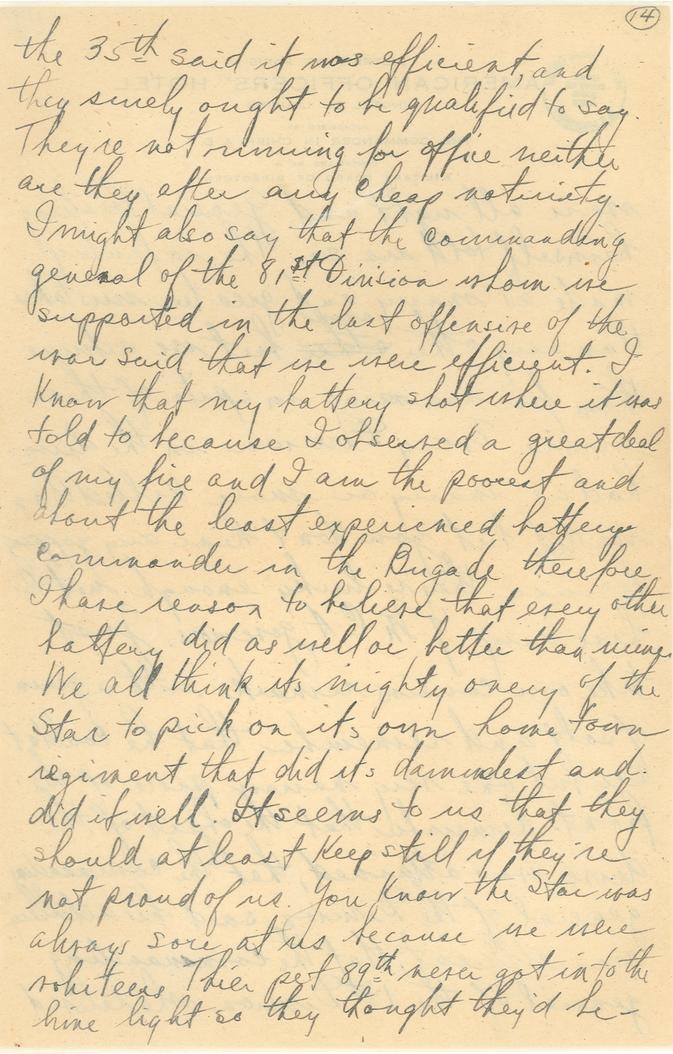 14
the 35th said it was efficient, and
they surely ought to be qualified to say.
They're not running for office neither
are they after any cheap notoriety.
I might also say that the commanding
general of the 81st Division whom we
supported in the last offensive of the
war said that we were efficient. I
know that my battery shot where it was
told to because I observed a great deal
of my fire and I am the poorest and
about the least experienced battery
commander in the Brigade therefore
I have reason to believe that every other
battery did as well or better than mine.
We all think its mighty onery of the
Star to pick on its own home town
regiment that did its damndest and
did it well. It seems to us that they
should at least keep still if they're
not proud of us. You know the Star was
always sore at us because we were
Thier pet 89th never got into the
lime light so they thought they'd be-